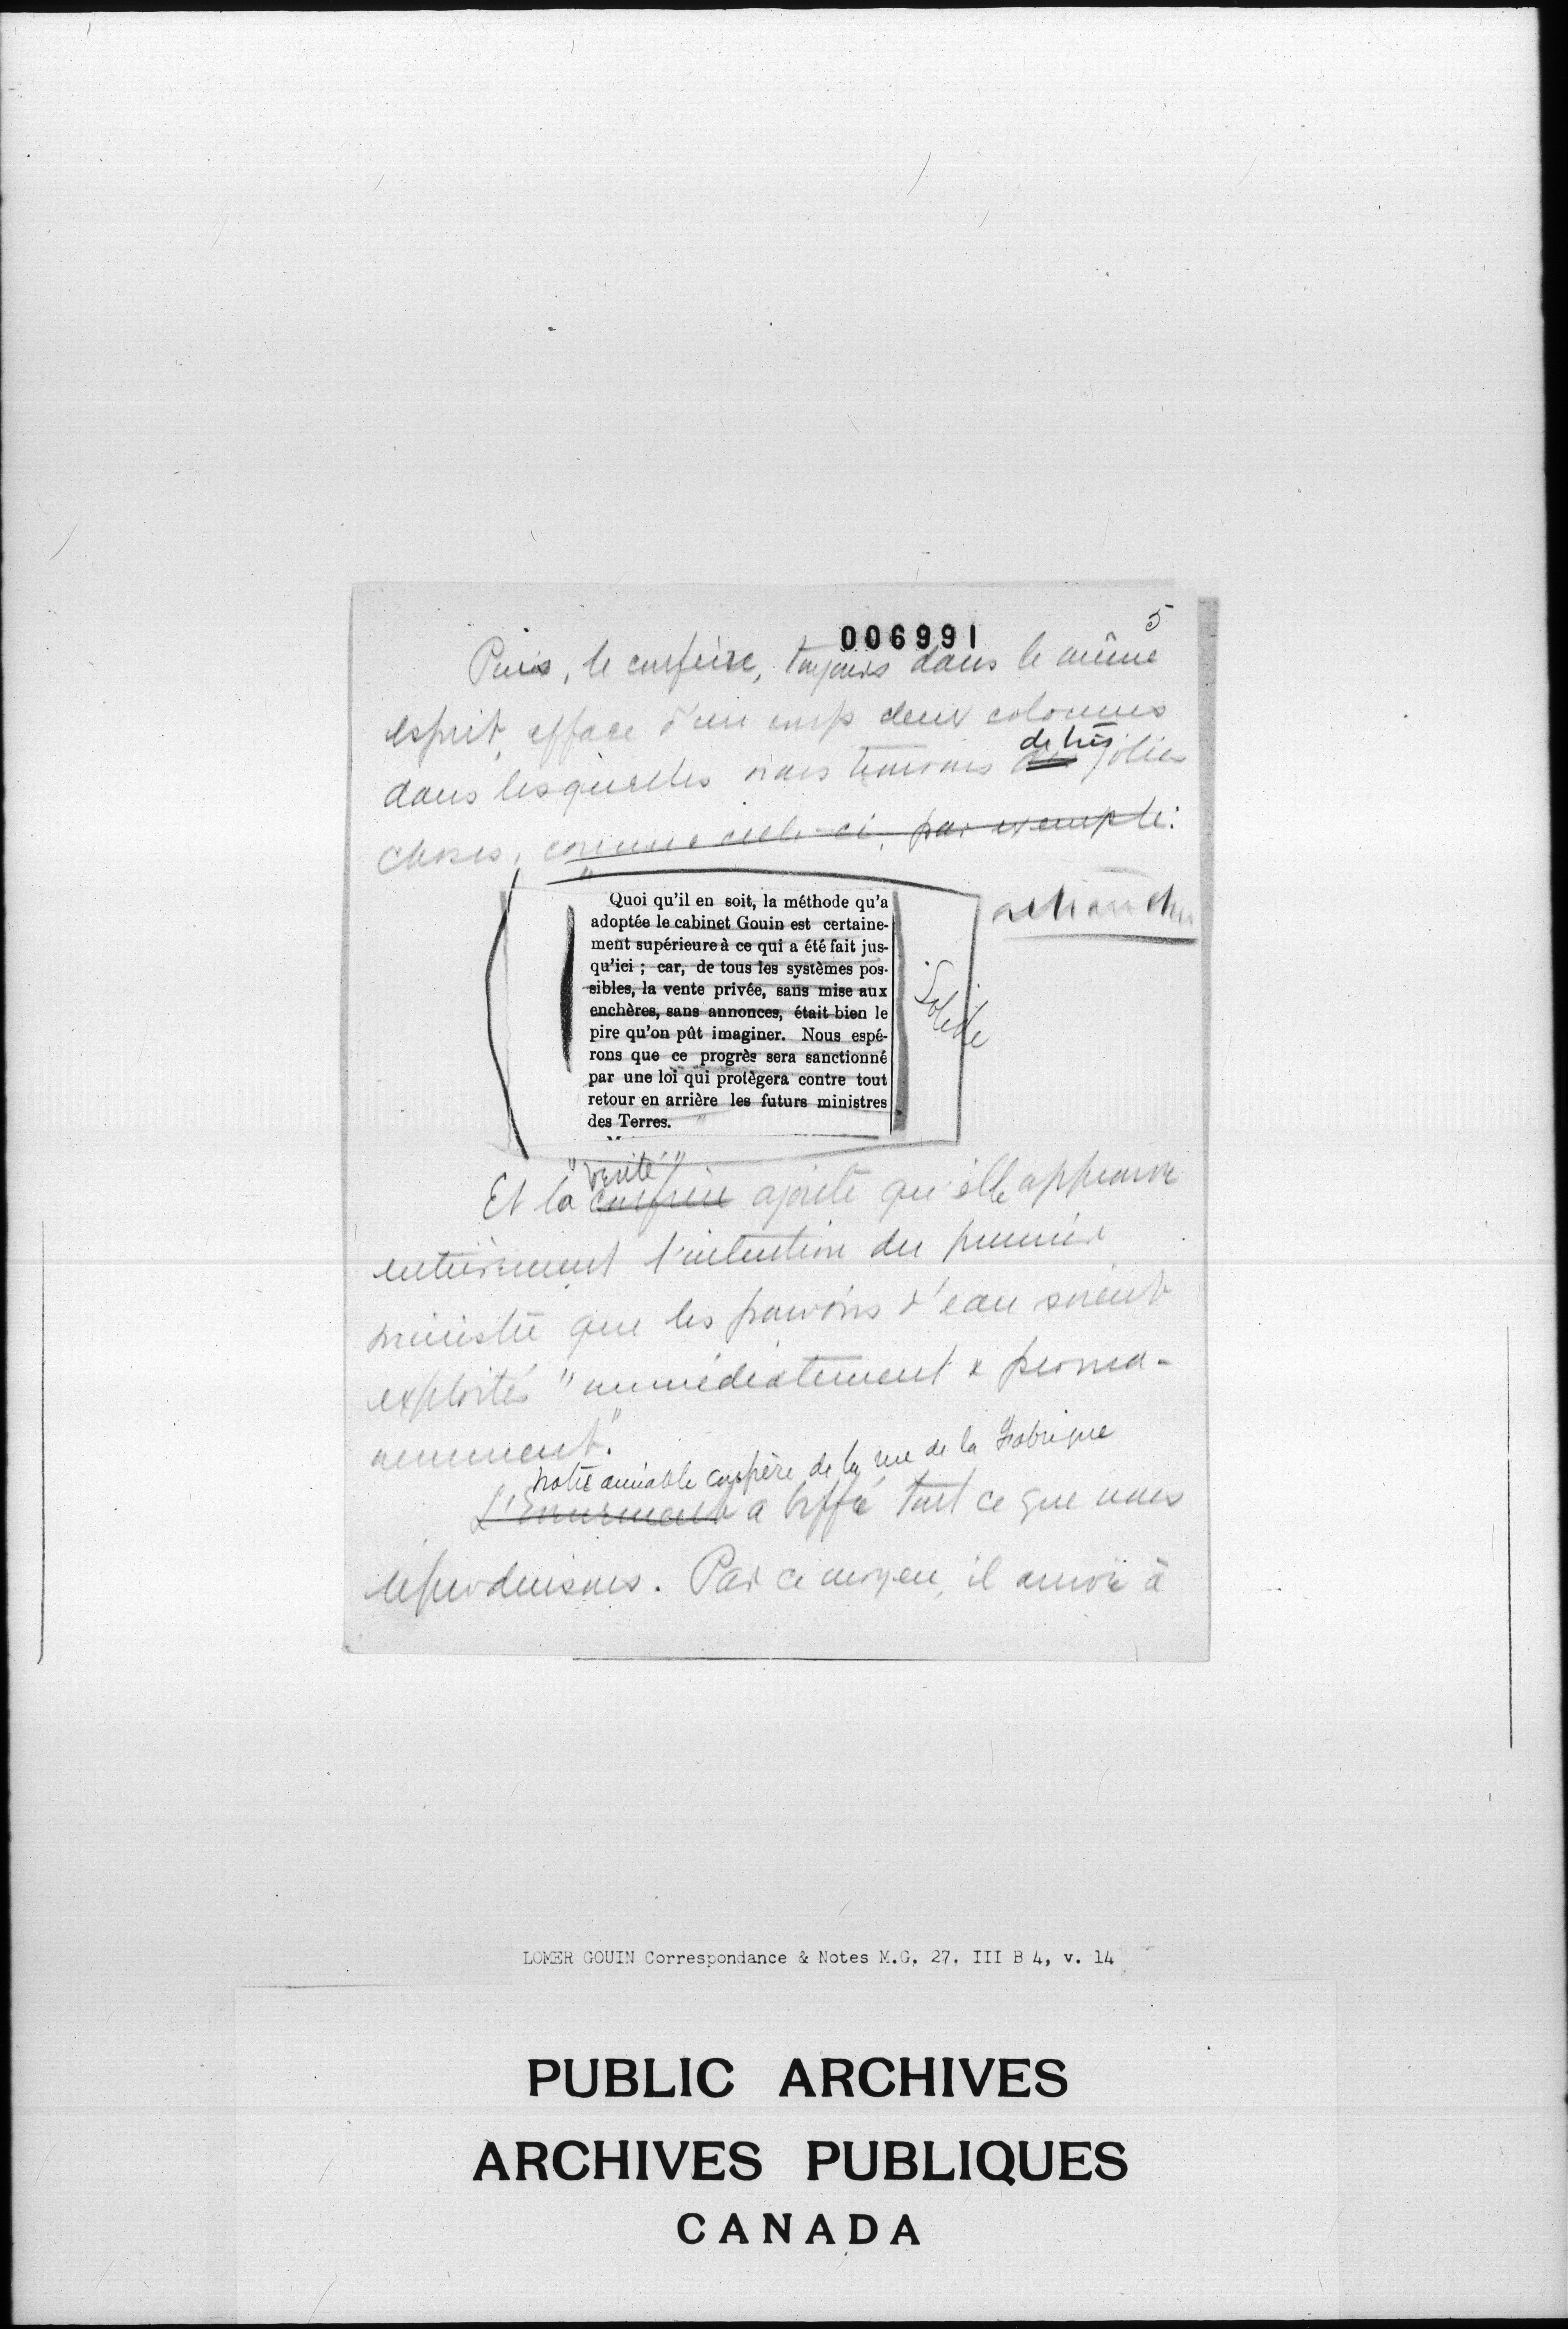 5
006991
Puis, le confrère, toujours dans le même
esprit, efface d'un coup deux colonnes
dans lesquelles nous trouvons des de très jolies
choses, comme celle-ci, par exemple:
"
Quoi qu'il en soit, la méthode qu'a
adoptée le cabinet Gouin est certaine-
ment supérieure à ce qui a été fait jus-
qu'ici ; car, de tous les systèmes pos-
sibles, la vente privée, sans mise aux
enchères, sans annonces, était bien le
pire qu'on pût imaginer. Nous espé-
rons que ce progrès sera sanctionné
par une loi qui protègera contre tout
retour en arrière les futurs ministres
des Terres.
retrancher
Solide
Et la confrère "Vérité" ajoute qu'elle approuve
entièrement l'intention du premier
ministre que les pouvoirs d'eau soient
exploités "immédiatement & perma-
nemment."
notre aimable confrère de la rue de la Fabrique
L'Événement a biffé tout ce que nous
reproduisons. Par ce moyen, il arrive à
LOMER GOUIN Correspondance & Notes M.G. 27, III B 4, v. 14
PUBLIC ARCHIVES
ARCHIVES PUBLIQUES
CANADA